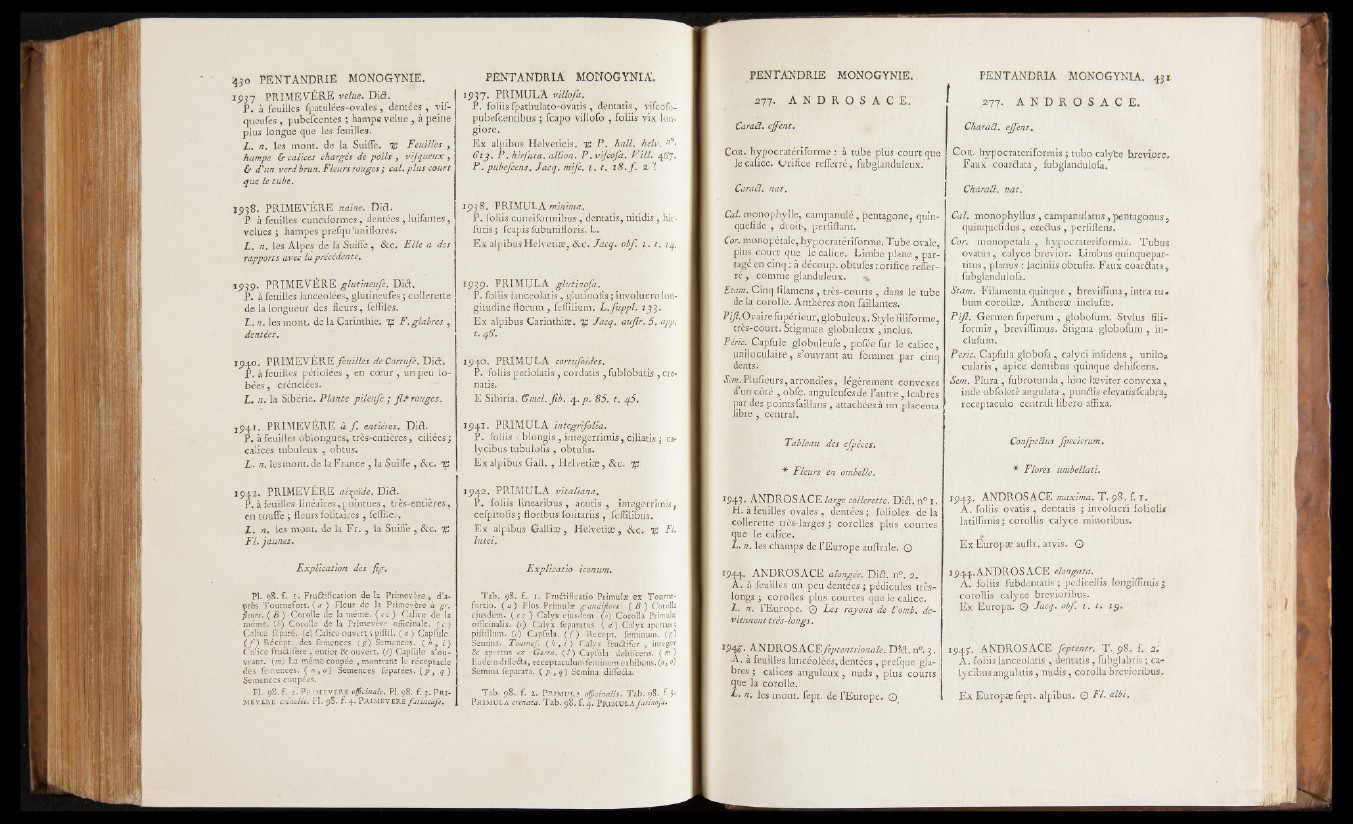 430 PENTANDRIE MONOGYNIE.
1937 PRIMEVÈRE velue. Dict.
P. à feuilles ſpatulées-ovales, dentées, viſ-
queuſes, pubeſcentes; hampe velue, à peine
plus longue que les feuilles.
L. n. les mont. de la Suiſſe. ♃ Feuilles,
hampe & calices chargés de poils, viſqueux,
& d'un verd brun. Fleurs rouges; cal. plus court
que le tube.
1938. PRIMEVÈRE naine. Dict.
P à feuilles cunéiformes, dentées, luiſantes,
velues; hampes preſqu'uniflores.
L. n. les Alpes de la Suiſſe, &c. Elle a des
rapports avec la précédente.
1939. PRIMEVÈRE glutineuſe. Dict.
P. à feuilles lancéolées, glutineuſes; collerette
de la longueur des fleurs, ſeſſiles.
L. n. les mont. de la Carinthie. ♃ F. glabres,
dentées.
1940. PRIMEVÈRE feuilles de Cortuſe. Dict.
P. à feuilles pétiolées, en cœur, un peu lo-
bées, crénelées.
L. n. la Sibérie. Plante pileuſe; fl. rouges.
1941. PRIMEVÈRE à f. entières. Dict.
P. à feuilles oblongues, très-entières, ciliées;
calices tubuleux, obtus.
L. n. les mont. de la France, la Suiſſe, &c. ♃
1942. PRIMEVÈRE aizoïde. Dict.
P. à feuilles linéaires, pointues, très-entières,
en touffe; fleurs ſolitaires, ſeſſiles.
L. n. les mont. de la Fr., la Suiſſe, &c. ♃
Fl. jaunes.
Explication des fig.
Pl. 98. f. 1. Fructification de la Primevère, d'a-
près Tournefort. (a) Fleur de la Primevère à gr.
fleurs. (B) Corolle de la même. (cc) Calice de la
même. (b) Corolle de la Primevère officinale. (c)
Calice ſéparé. (d) Calice ouvert; piſtil. (e) Capſule,
(f) Récept. des ſemences (g) Semences. (h, i)
Calice fructifère, entier & ouvert. (l) Capſule s'ou-
vrant. (m) La même coupée, montrant le réceptacle
des ſemences. (n, o) Semences ſéparées. (p, q)
Semences coupées.
Pl. 98. f. 2. PRIMEVERE officinale. Pl. 98. f. 3. PRI-
MEVERE crénelée. Pl. 98. f. 4. PRIMEVERE farineuſe.
PENTANDRIA MONOGYNIA.
1937. PRIMULA villoſa.
P. foliis ſpathulato-ovatis, dentatis, viſcoſo-
pubeſcentibus; ſcapo villoſo, foliis vix lon-
giore.
Ex alpibus Helveticis. ♃ P. hall. helv. n°.
613. P. hirſuta. allion. P. viſcoſa. Vill. 467.
P. pubeſcens. Jacq. miſc. 1. t. 18. f. 2 ?
1938. PRIMULA minima.
P. foliis cuneiformibus, dentatis, nitidis, hir-
ſutis; ſcapis ſubunifloris. L.
Ex alpibus Helvetiæ, &c. Jacq. obſ. 1. t. 14.
1939. PRIMULA glutinoſa.
P. foliis lanceolatis, glutinoſis; involucro lon-
gitudine florum, ſeſſilium. L. ſuppl. 133.
Ex alpibus Carinthiæ. ♃ Jacq. auſtr. 5. app.
t. 46.
1940. PRIMULA cortuſoides.
P. foliis petiolatis, cordatis, ſublobatis, cre-
natis.
E Sibiria. Gmel. ſib. 4. p. 85. t. 45.
1941. PRIMULA integrifolia.
P. foliis oblongis, integerrimis, ciliatis; ca-
lycibus tubuloſis, obtuſis.
Ex alpibus Gall., Helvetiæ, &c. ♃
1942. PRIMULA vitaliana.
P. foliis linearibus, acutis, integerrimis,
ceſpitoſis; floribus ſolitariis, ſeſſilibus.
Ex alpibus Galliæ, Helvetiæ, &c. ♃ Fl.
lutei.
Explicatio iconum.
Tab. 98. f. 1. Fructificatio Primulæ ex Tourne-
fortio. (a) Flos Primulæ grandifloræ. (B) Corolla
ejuſdem. (cc) Calyx ejuſdem (b) Corolla Primulæ
officinalis. (c) Calyx ſeparatus. (d) Calyx apertus;
piſtillum. (e) Capſula. (f) Recept. ſeminum. (g)
Semina. Tournef. (h, i) Calyx fructifer, integer
& apertus ex Gærtn. (l) Capſula dehiſcens. (m)
Eadem diſſecta, receptaculum ſeminum exhibens. (n, o)
Semina ſeparata. (p, q) Semina diſſecta.
Tab. 98. f. 2. PRIMULA officinalis. Tab. 98. f. 3.
PRIMULA crenata. Tab. 98. f. 4. PRIMULA farinoſa.
PENTANDRIE MONOGYNIE.
277. ANDROSACE.
Caract. eſſent.
COR. hypocratériforme: à tube plus court que
le calice. Orifice reſſerré, ſubglanduleux.
Caract. nat.
Cal. monophylle, campanulé, pentagone, quin-
quefide, droit, perſiſtant.
Cor. monopétale, hypocratériforme. Tube ovale,
plus court que le calice. Limbe plane, par-
tagé en cinq: à découp. obtuſes: orifice reſſer-
ré, comme glanduleux.
Etam. Cinq filamens, très-courts, dans le tube
de la corolle. Anthères non ſaillantes.
Piſt. Ovaire ſupérieur, globuleux. Style filiforme,
très-court. Stigmate globuleux, inclus.
Péric. Capſule globuleuſe, poſée ſur le calice,
uniloculaire, s'ouvrant au ſommet par cinq
dents.
Sem. Pluſieurs, arrondies, légèrement convexes
d'un côté, obſc. anguleuſes de l'autre, ſcabres
par des points ſaillans, attachées à un placenta
libre, central.
Tableau des eſpèces.
* Fleurs en ombelle.
1943. ANDROSACE large collerette. Dict. n° 1.
H. à feuilles ovales, dentées; folioles de la
collerette très-larges; corolles plus courtes
que le calice.
L. n. les champs de l'Europe auſtrale. ☉
1944. ANDROSACE alongée. Dict. n°. 2.
A. à feuilles un peu dentées; pédicules très-
longs; corolles plus courtes que le calice.
L. n. l'Europe. ☉ Les rayons de l'omb. de-
viennent très-longs.
1945. ANDROSACE ſeptentrionale. Dict. n°. 3.
A. à feuilles lancéolées, dentées, preſque gla-
bres; calices anguleux, nuds, plus courts
que la corolle.
L. n. les mont. ſept. de l'Europe. ☉
PENTANDRIA MONOGYNIA. 431
277. ANDROSACE.
Charact. eſſent.
COR. hypocrateriformis; tubo calyce breviore.
Faux coarctata, ſubglanduloſa.
Charact. nat.
Cal. monophyllus, campanulatus, pentagonus,
quinquefidus, erectus, perſiſtens.
Cor. monopetala, hypocrateriformis. Tubus
ovatus, calyce brevior. Limbus quinquepar-
titus, planus: laciniis obtuſis. Faux coarctata,
ſubglanduloſa.
Stam. Filamenta quinque, breviſſima, intra tu-
bum corollæ. Antheræ incluſæ.
Piſt. Germen ſuperum, globoſum. Stylus fili-
formis, breviſſimus. Stigma globoſum, in-
cluſum.
Peric. Capſula globoſa, calyci inſidens, unilo-
cularis, apice dentibus quinque dehiſcens.
Sem. Plura, ſubrotunda, hinc læviter convexa,
inde obſoletè angulata, punctis elevatis ſcabra,
receptaculo centrali libero affixa.
Conſpectus ſpecierum.
* Flores umbellati.
1943. ANDROSACE maxima. T. 98. f. 1.
A. foliis ovatis, dentatis; involucri foliolis
latiſſimis; corollis calyce minoribus.
Ex Europæ auſtr. arvis. ☉
1944. ANDROSACE elongata.
A. foliis ſubdentatis; pedicellis longiſſimis;
corollis calyce brevioribus.
Ex Europa. ☉ Jacq. obſ. 1. t. 19.
1945. ANDROSACE ſeptentr. T. 98. f. 2.
A. foliis lanceolatis, dentatis, ſubglabris; ca-
lycibus angulatis, nudis, corolla brevioribus.
Ex Europæ ſept. alpibus. ☉ Fl. albi.